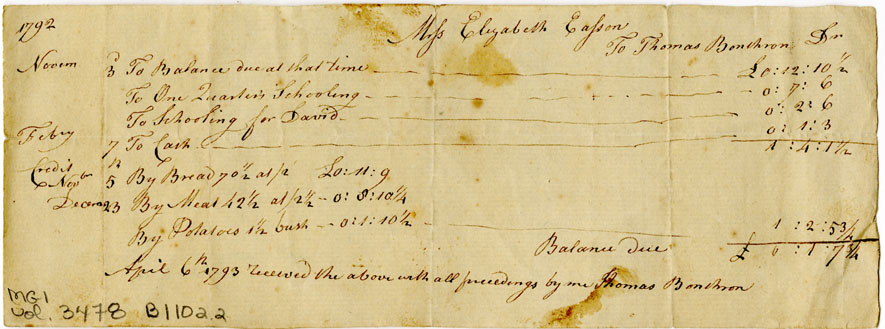 1792
Miss Elizabeth Easson
To Thomas Bonthron Dr
Novem 3d To Balance due at that time £0:12:10½
To One Quarters Schooling 0:7:6
To Schooling for David 0:2:6
Febry 7 To Cash 0:1:3
1:4:1½
Credit
Novbr 5 By Bread 70½ at /2 £0:11:9
Decem 23 By Meat 42½ at /2½ 0:8:10¼
By Potatoes 1½ bush 0:1:10½ 1:2:5¾
Balance due £ 0:1:7¾
April 6th 1793 received the above with all precedings by me Thomas Bonthron
MG1
Vol. 3478 B1102.2